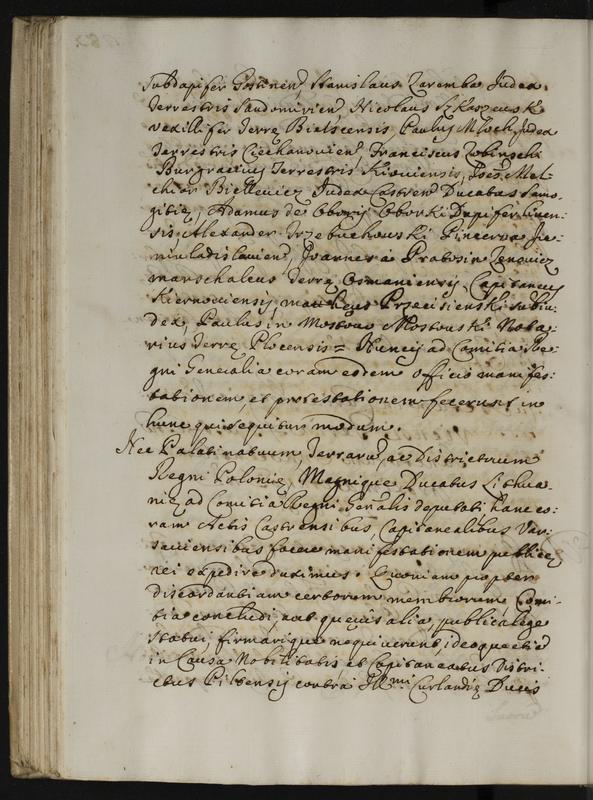 Subdapifer Gostinen, Stanislaus Zaremba Judex
Terrestris Sandomirien, Nicolaus
vexillifer Terrę Bielscensis, Paulus Mloch Judex
Terrestris Ciechanovien, Franciscus
Burgrabius Terrestris Kijoviensis, Mel-
chior Bielleviez Judex Castren Ducatus Samo-
gitię, Adamus de Obory Oborski Dapifer Liven-
sis, Alexander Trzebuchowski Pincerna Ju-
niuladislavien, Joannes à Prawosin Zenowicz
marschalcus Terrę Osmaniensis, Capitaneus
Kiernoviensis, mattheus Przecisienski Subiu-
dex, Paulus in Mostowo Mostowski Nota-
rius Terrę Plocensis = Nuncij ad Comitia Re-
gni Generalia coram eodem officio manifes-
tationem, et protestationem fecerunt in
hunc qui sequitur modum.
Nos Palatinatuum, Terrarũ, ac Districtuum
Regni Polonię, Magnique Ducatus Lithua-
nię ad Comitia Regni Genralia deputati hanc co-
ram Actis Castrensibus, Capitanealibus Var-
saviensibus facere manifestationem publicę
rei expedire duximus. Quoniam propter
discordantiam certorum membrorum Comi-
tia concludi, aut quęvis alia, publica lege
statui, firmarique nequiverunt, ideoque etiã
in Causa Nobilitatis, et Capitaneatus Distri-
ctus Piltensis contra Illmi Curlandię Ducis